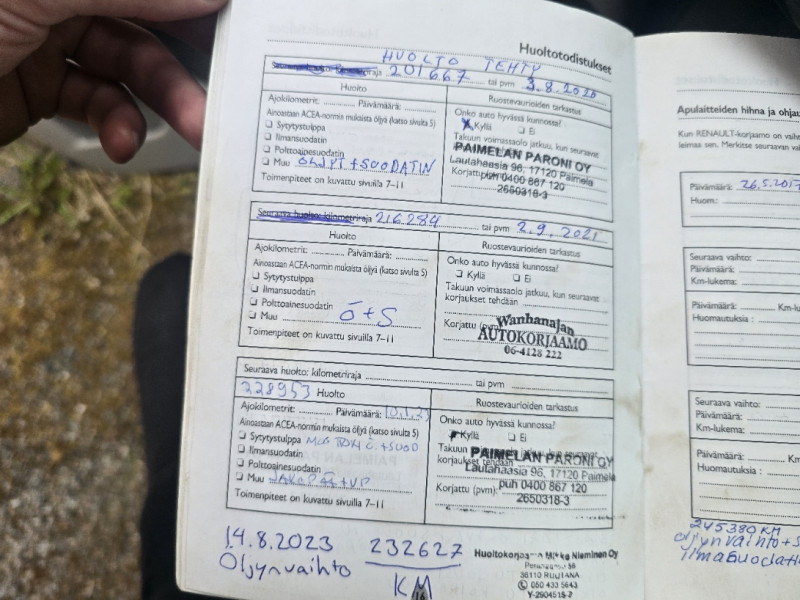 Huoltotodistukset
HUOLTO TEHTY
201667 tai pvm 3.8.2020
Huolto
Ajokilometrit: Päivämäärä:
Ainoastaan ACEA-normin mukaista öljyä (katso sivulta 5)
Sytytystulppa
Ilmansuodatin
Polttoainesuodatin
Muu ÖLJYT + SUODATIN
Toimenpiteet on kuvattu sivuilla 7–11
Ruostevaurioiden tarkastus
Onko auto hyvässä kunnossa?
Kyllä Ei
Takuun voimassaolo jatkuu, kun seuraavat
PAIMELAN PARONI OY
Laulahaasia 96, 17120 Paimela
Korjattu
puh 0400 867 120
2650318-3
Seuraava huolto: kilometriraja 216284 tai pvm 2.9.2021
Huolto
Ajokilometrit: Päivämäärä:
Ainoastaan ACEA-normin mukaista öljyä (katso sivulta 5)
Sytytystulppa
Ilmansuodatin
Polttoainesuodatin
Muu Ö+S
Toimenpiteet on kuvattu sivuilla 7–11
Ruostevaurioiden tarkastus
Onko auto hyvässä kunnossa?
Kyllä Ei
Takuun voimassaolo jatkuu, kun seuraavat
korjaukset tehdään
Korjattu (pvm):
Wanhanajan
AUTOKORJAAMO
06-4128 222
Seuraava huolto: kilometriraja tai pvm
228953 Huolto
Ajokilometrit: Päivämäärä:
Ainoastaan ACEA-normin mukaista öljyä (katso sivulta 5)
Sytytystulppa
Ilmansuodatin
Polttoainesuodatin
Muu
Toimenpiteet on kuvattu sivuilla 7–11
Ruostevaurioiden tarkastus
Onko auto hyvässä kunnossa?
Kyllä Ei
Takuun jatkuu, kun seuraavat
korjaukset tehdään
PAIMELAN PARONI OY
Laulahaasia 96, 17120 Paimela
Korjattu (pvm):
puh 0400 867 120
2650318-3
14.8.2023 232627
Öljynvaihto KM
Huoltokorjaamo Mikko Nieminen Oy
050 433 5643
Y-2904518-2
Apulaitteiden hihna ja
Kun RENAULT-korjaamo on
leimaa sen. Merkitse seuraavan
Päivämäärä: 26.5.2017
Huom.:
Seuraava vaihto:
Päivämäärä:
Km-lukema:
Päivämäärä:
Huomautuksia:
Seuraava vaihto:
Päivämäärä:
Km-lukema:
Päivämäärä:
Huomautuksia:
245380 KM
öljynvaihto+S